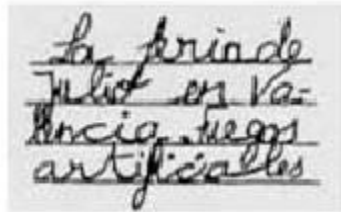 La feria de
Juliot en Va-
lencia. fuegos
artificialles